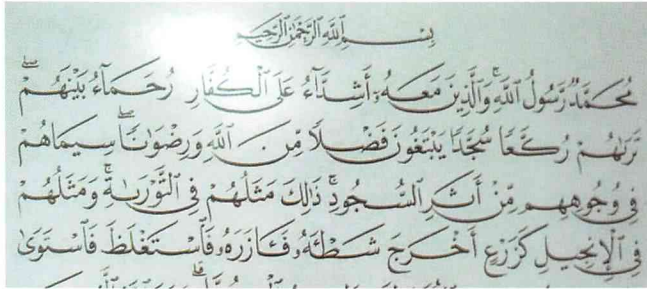 بِسْمِ ٱللَّهِ ٱلرَّحْمَٰنِ ٱلرَّحِيمِ
مُّحَمَّدٌ رَّسُولُ ٱللَّهِ ۚ وَٱلَّذِينَ مَعَهُۥٓ أَشِدَّآءُ عَلَى ٱلْكُفَّارِ رُحَمَآءُ بَيْنَهُمْ ۖ
تَرَىٰهُمْ رُكَّعًا سُجَّدًا يَبْتَغُونَ فَضْلًا مِّنَ ٱللَّهِ وَرِضْوَٰنًا ۖ سِيمَاهُمْ
فِى وُجُوهِهِم مِّنْ أَثَرِ ٱلسُّجُودِ ۚ ذَٰلِكَ مَثَلُهُمْ فِى ٱلتَّوْرَىٰةِ ۚ وَمَثَلُهُمْ
فِى ٱلْإِنجِيلِ كَزَرْعٍ أَخْرَجَ شَطْـَٔهُۥ فَـَٔازَرَهُۥ فَٱسْتَغْلَظَ فَٱسْتَوَىٰ